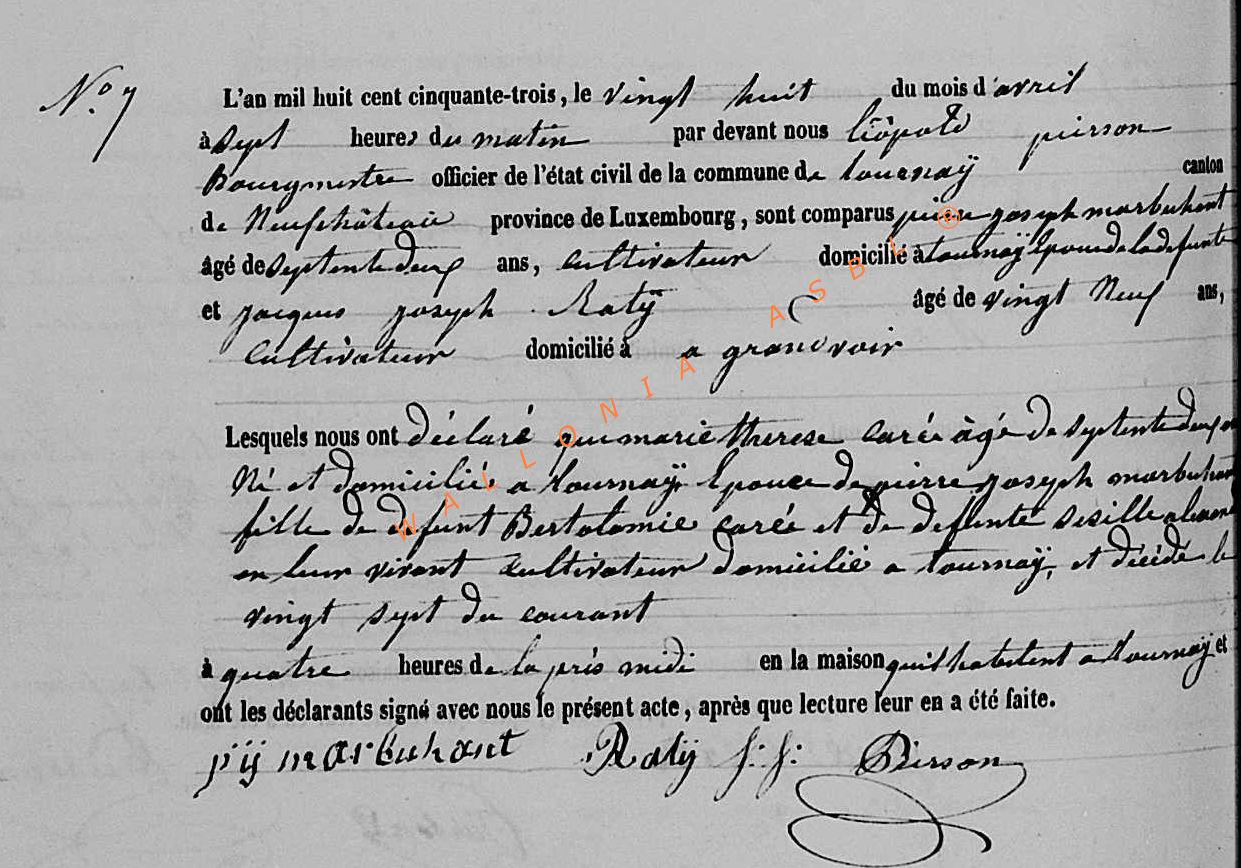 N.o 7
L'an mil huit cent cinquante-trois, le vingt huit du mois d'avril
à sept heures du matin par devant nous léopold pierson
Bourgmestre officier de l'état civil de la commune de tournaÿ canton
de Neufchâteau province de Luxembourg, sont comparus pierre joseph marbehant
âgé de septente deux ans, cultivateur domicilié à tournaÿ Epoux de la defunte
et jacques joseph Ratÿ âgé de vingt Neuf ans,
cultivateur domicilié à a grandvoir
Lesquels nous ont déclaré que marie therese carée âgé de septente deux an
Né et domicilié a tournaÿ Epouce de pierre joseph marbehan
fille de defunt Bertolomie carée et de defunte sesille
en leur vivant cultivateur domicilié a tournaÿ, et décédé le
vingt sept du courant
à quatre heures de la près midi en la maison quil habitent a tournaÿ et
ont les déclarants signé avec nous le présent acte, après que lecture leur en a été faite.
p i j marbehant Ratÿ j: j: Pierson
WALLONIA ASBL ©